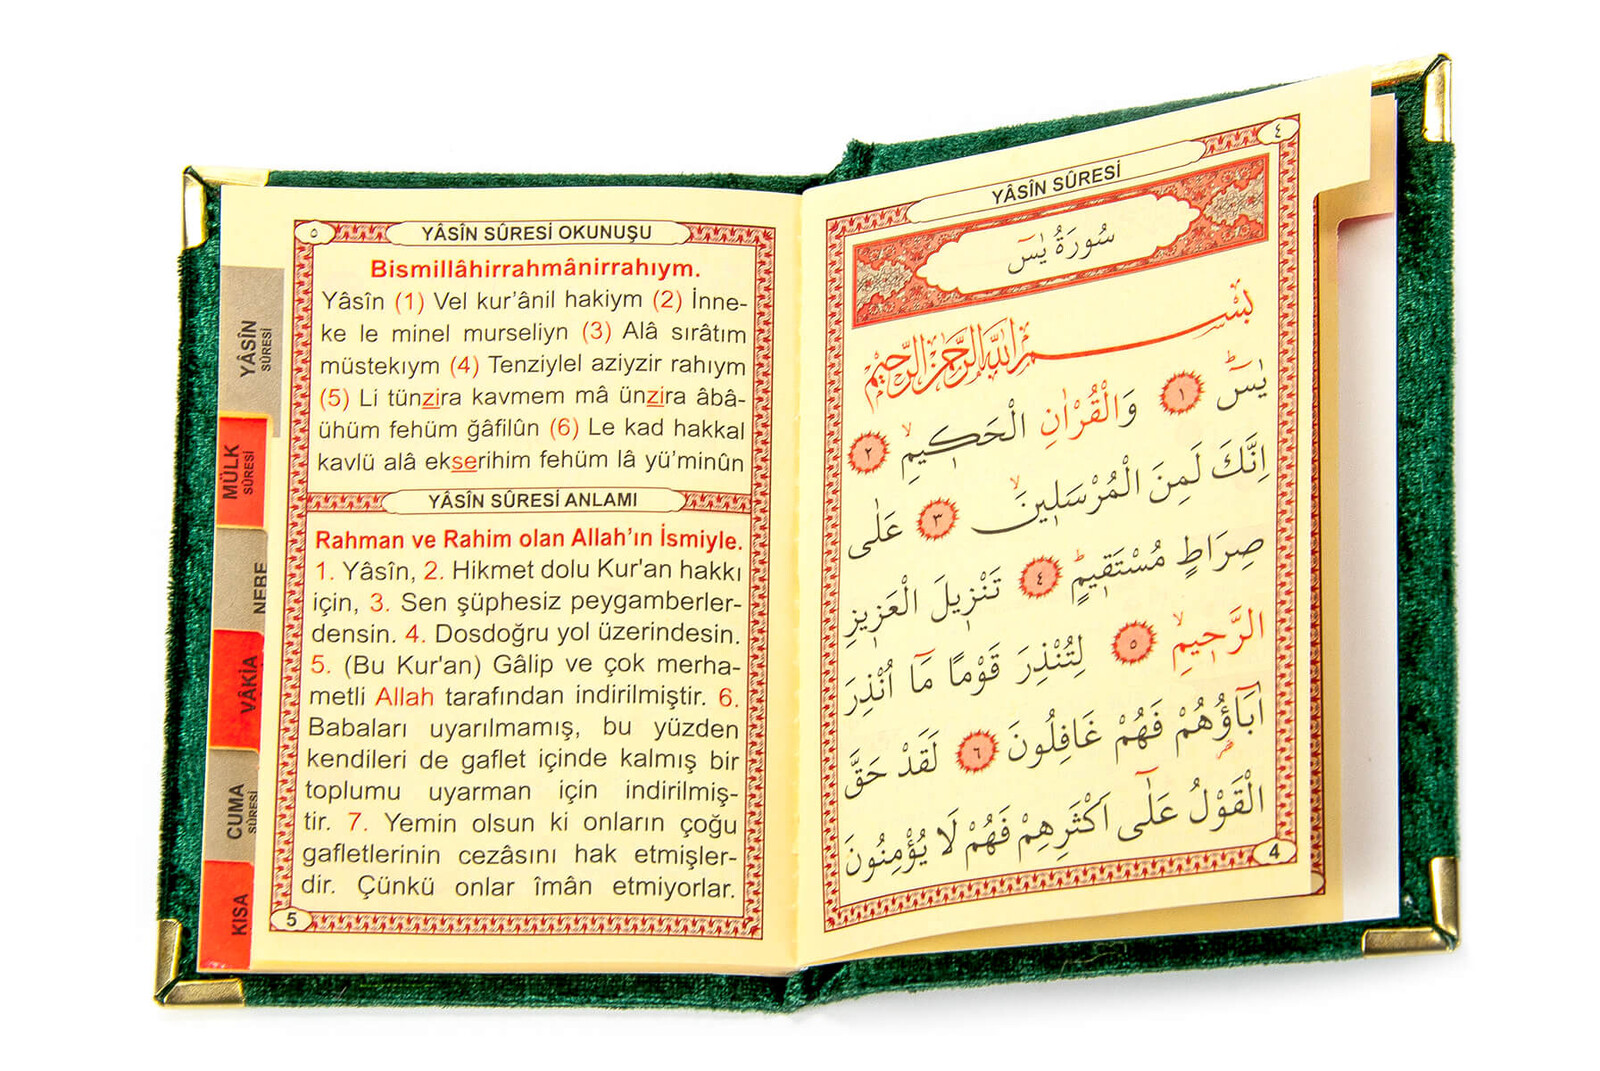 ٥
YÂSÎN SÛRESİ OKUNUŞU
Bismillâhirrahmânirrahıym.
Yâsîn (1) Vel kur’ânil hakiym (2) İnne-
ke le minel murseliyn (3) Alâ sırâtım
müstekıym (4) Tenziylel aziyzir rahıym
(5) Li tünzira kavmem mâ ünzira âbâ-
ühüm fehüm ğâfilûn (6) Le kad hakkal
kavlü alâ ekserihim fehüm lâ yü’minûn
YÂSÎN SÛRESİ ANLAMI
Rahman ve Rahim olan Allah’ın İsmiyle.
1. Yâsîn, 2. Hikmet dolu Kur'an hakkı
için, 3. Sen şüphesiz peygamberler-
densin. 4. Dosdoğru yol üzerindesin.
5. (Bu Kur'an) Gâlip ve çok merha-
metli Allah tarafından indirilmiştir. 6.
Babaları uyarılmamış, bu yüzden
kendileri de gaflet içinde kalmış bir
toplumu uyarman için indirilmiş-
tir. 7. Yemin olsun ki onların çoğu
gafletlerinin cezâsını hak etmişler-
dir. Çünkü onlar îmân etmiyorlar.
5
YÂSÎN
SÛRESİ
MÜLK
SÛRESİ
NEBE
VÂKİA
CUMA
SÛRESİ
KISA
٤
YÂSÎN SÛRESİ
سُورَةُ يٰسٓ
بِسْمِ اللّٰهِ الرَّحْمٰنِ الرَّحِيمِ
يٰسٓ ۚ ﴿١﴾ وَالْقُرْاٰنِ الْحَكِيمِ ۙ ﴿٢﴾
اِنَّكَ لَمِنَ الْمُرْسَلِينَ ۙ ﴿٣﴾ عَلٰى
صِرَاطٍ مُسْتَقِيمٍ ۜ ﴿٤﴾ تَنْزِيلَ الْعَزِيزِ
الرَّحِيمِ ۙ ﴿٥﴾ لِتُنْذِرَ قَوْمًا مَٓا اُنْذِرَ
اٰبَٓاؤُهُمْ فَهُمْ غَافِلُونَ ﴿٦﴾ لَقَدْ حَقَّ
الْقَوْلُ عَلٰٓى اَكْثَرِهِمْ فَهُمْ لَا يُؤْمِنُونَ
4